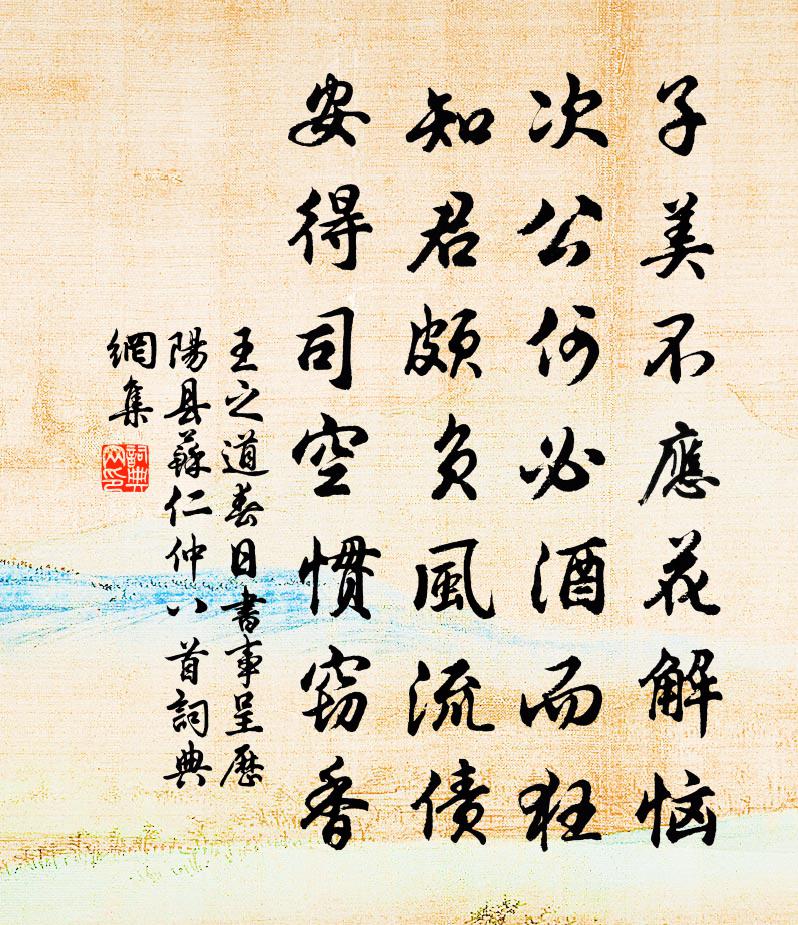 子美不應花解恼
次公何必酒而狂
知君頗负風流债
安得司空慣窃香
王之道春日書事呈歷
陽县蘇仁仲八首詞典
網集
詞典